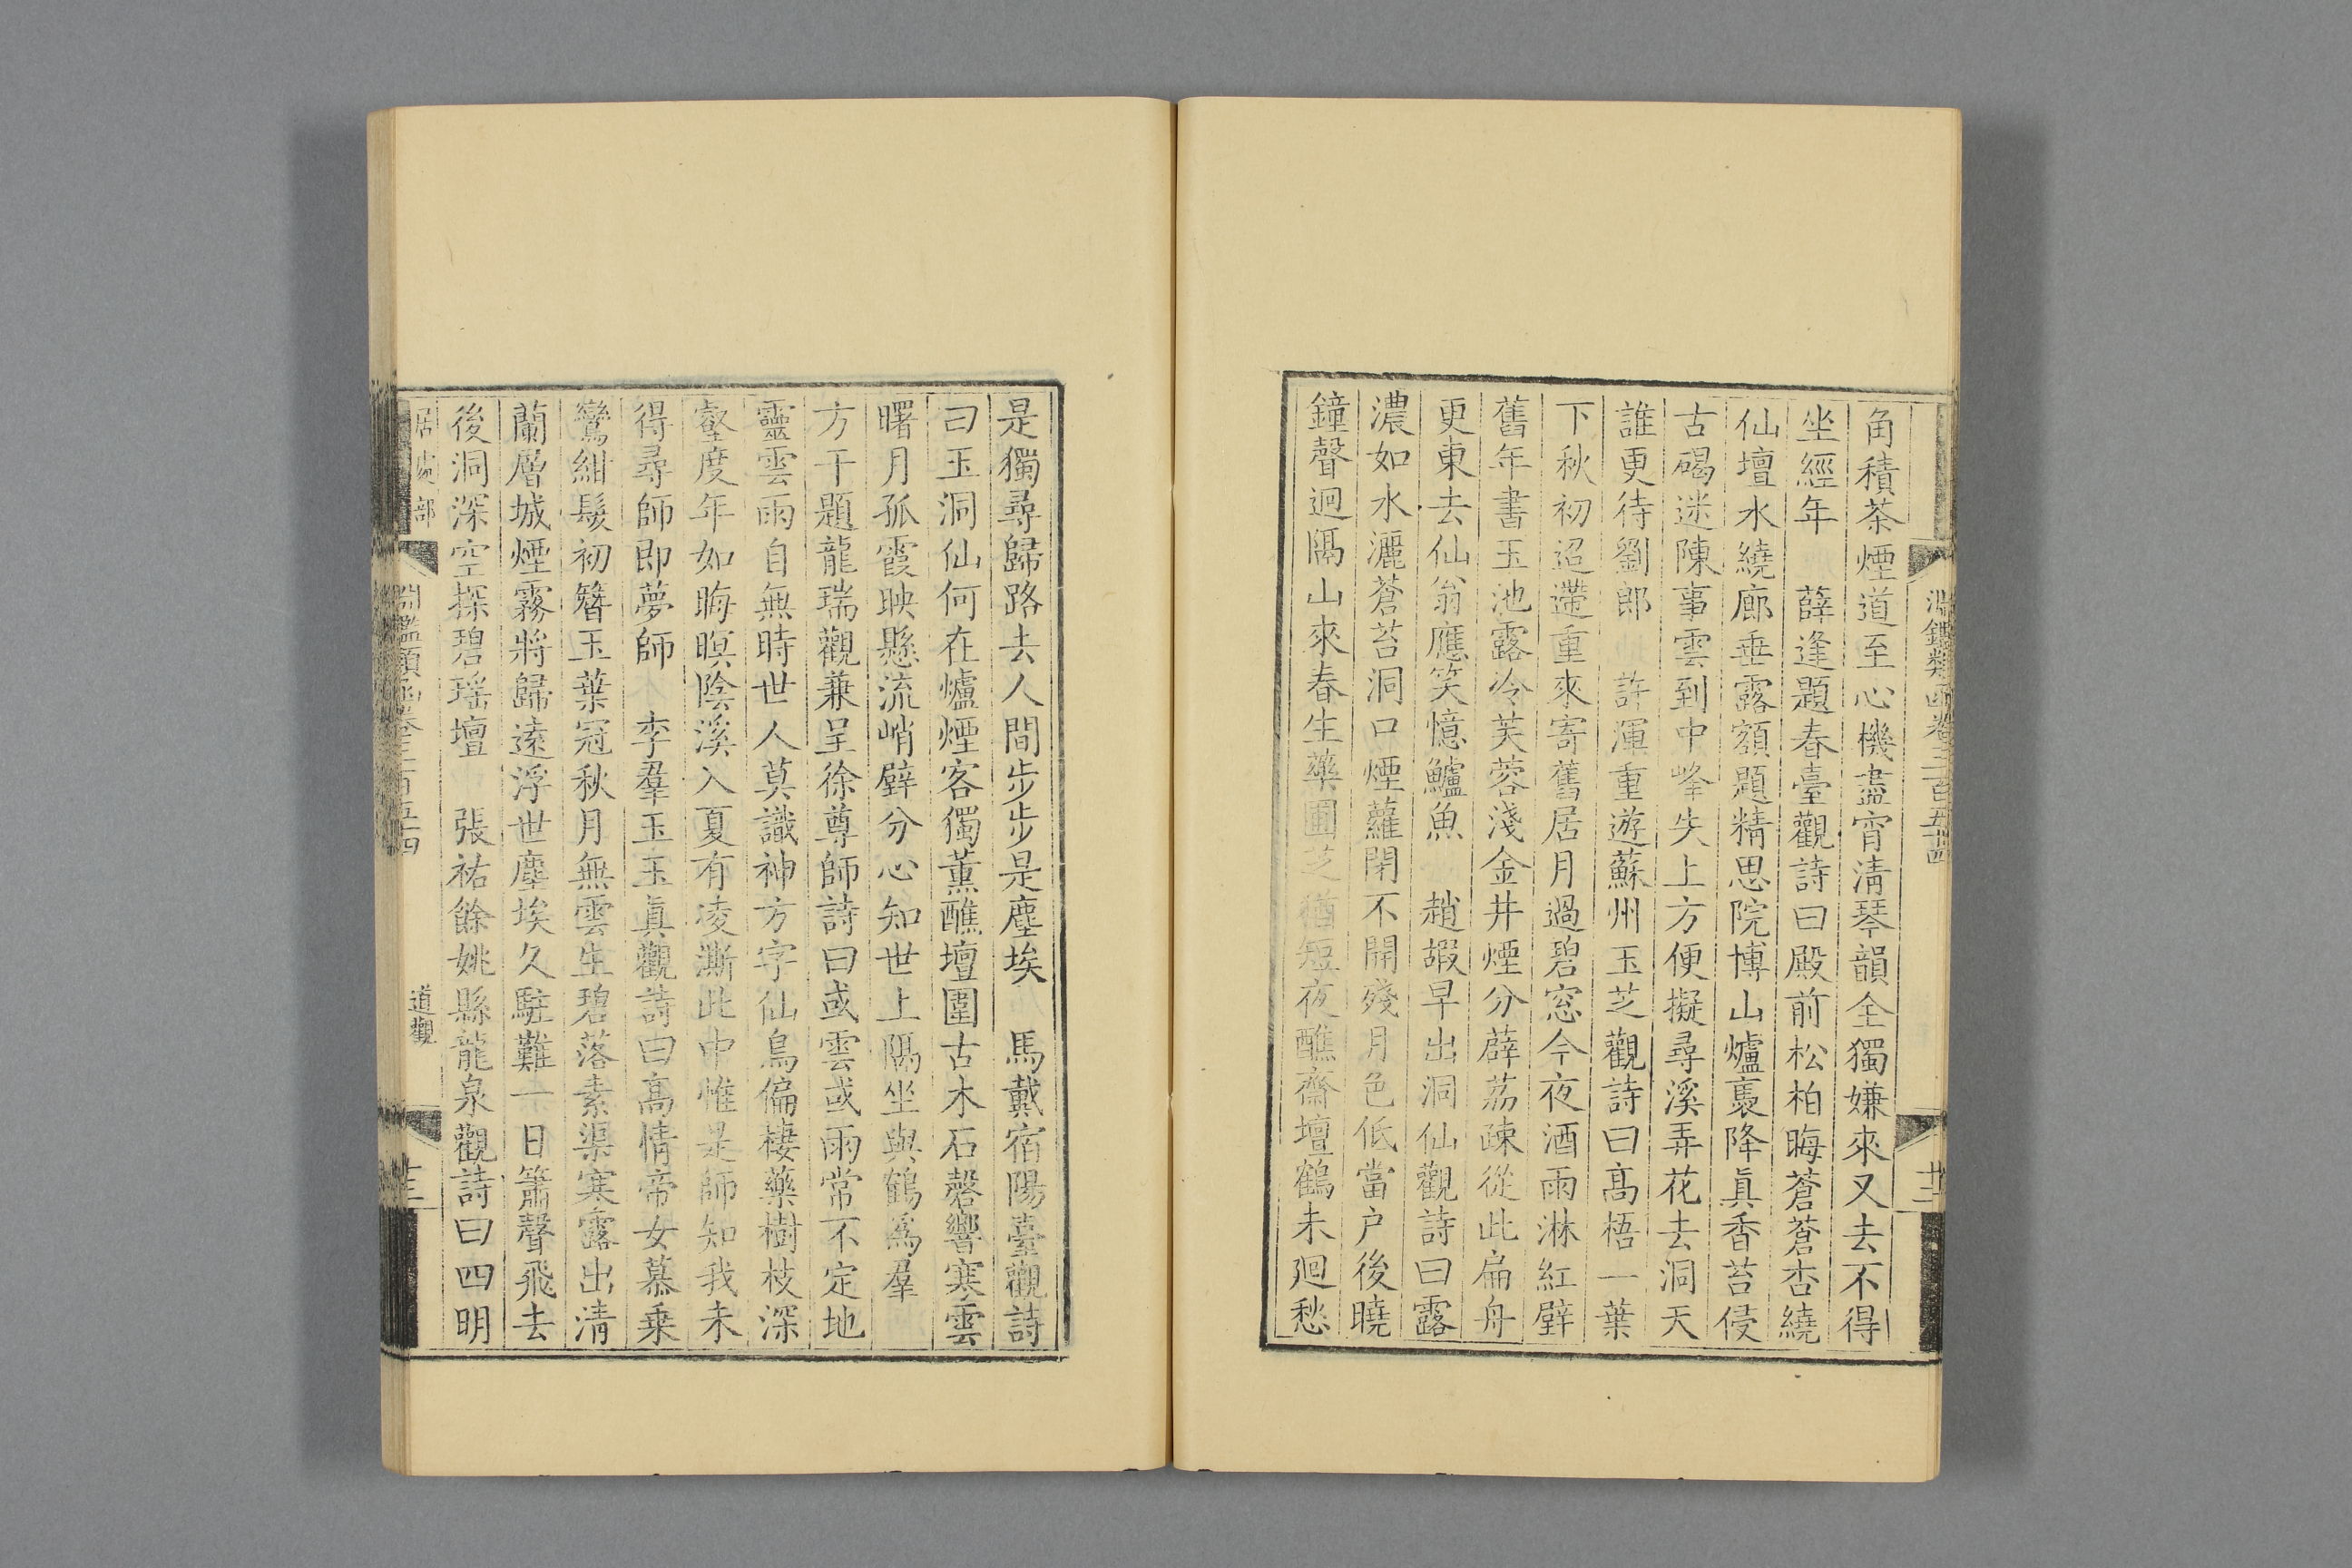 角積茶煙道至心機盡宵清琴韻全獨嫌來又去不得
坐經年　薛逢題春臺觀詩曰殿前松柏晦蒼蒼杏繞
仙壇水繞廊垂露額題精思院博山爐裛降眞香苔侵
古碣迷陳事雲到中峰失上方便擬尋溪弄花去洞天
誰更待劉郎　許渾重遊蘇州玉芝觀詩曰高梧一葉
下秋初迢遰重來寄舊居月過碧窓今夜酒雨淋紅壁
舊年書玉池露冷芙蓉淺金井煙分薜荔疎從此扁舟
更東去仙翁應笑憶鱸魚　趙嘏早出洞仙觀詩曰露
濃如水灑蒼苔洞口煙蘿閉不開殘月色低當户後曉
鐘聲迥隔山來春生藥圃芝猶短夜醮齋壇鶴未廻愁
淵鑑類函卷三百五十四
廿二
是獨尋歸路去人間步步是塵埃　馬戴宿陽臺觀詩
曰玉洞仙何在爐煙客獨薰醮壇圍古木石磬響寒雲
曙月孤霞映懸流峭壁分心知世上隔坐與鶴爲羣
方干題龍瑞觀兼呈徐尊師詩曰或雲或雨常不定地
靈雲雨自無時世人莫識神方字仙鳥偏棲藥樹枝深
壑度年如晦暝陰溪入夏有凌澌此中惟是師知我未
得尋師即夢師　李羣玉玉眞觀詩曰高情帝女慕乗
鸞紺髮初簪玉葉冠秋月無雲生碧落素渠寒露出清
蘭層城煙霧將歸遠浮世塵埃久駐難一日簫聲飛去
後洞深空探碧瑶壇　張祐餘姚縣龍泉觀詩曰四明
居處部
淵鑑類函卷三百五十四
道觀